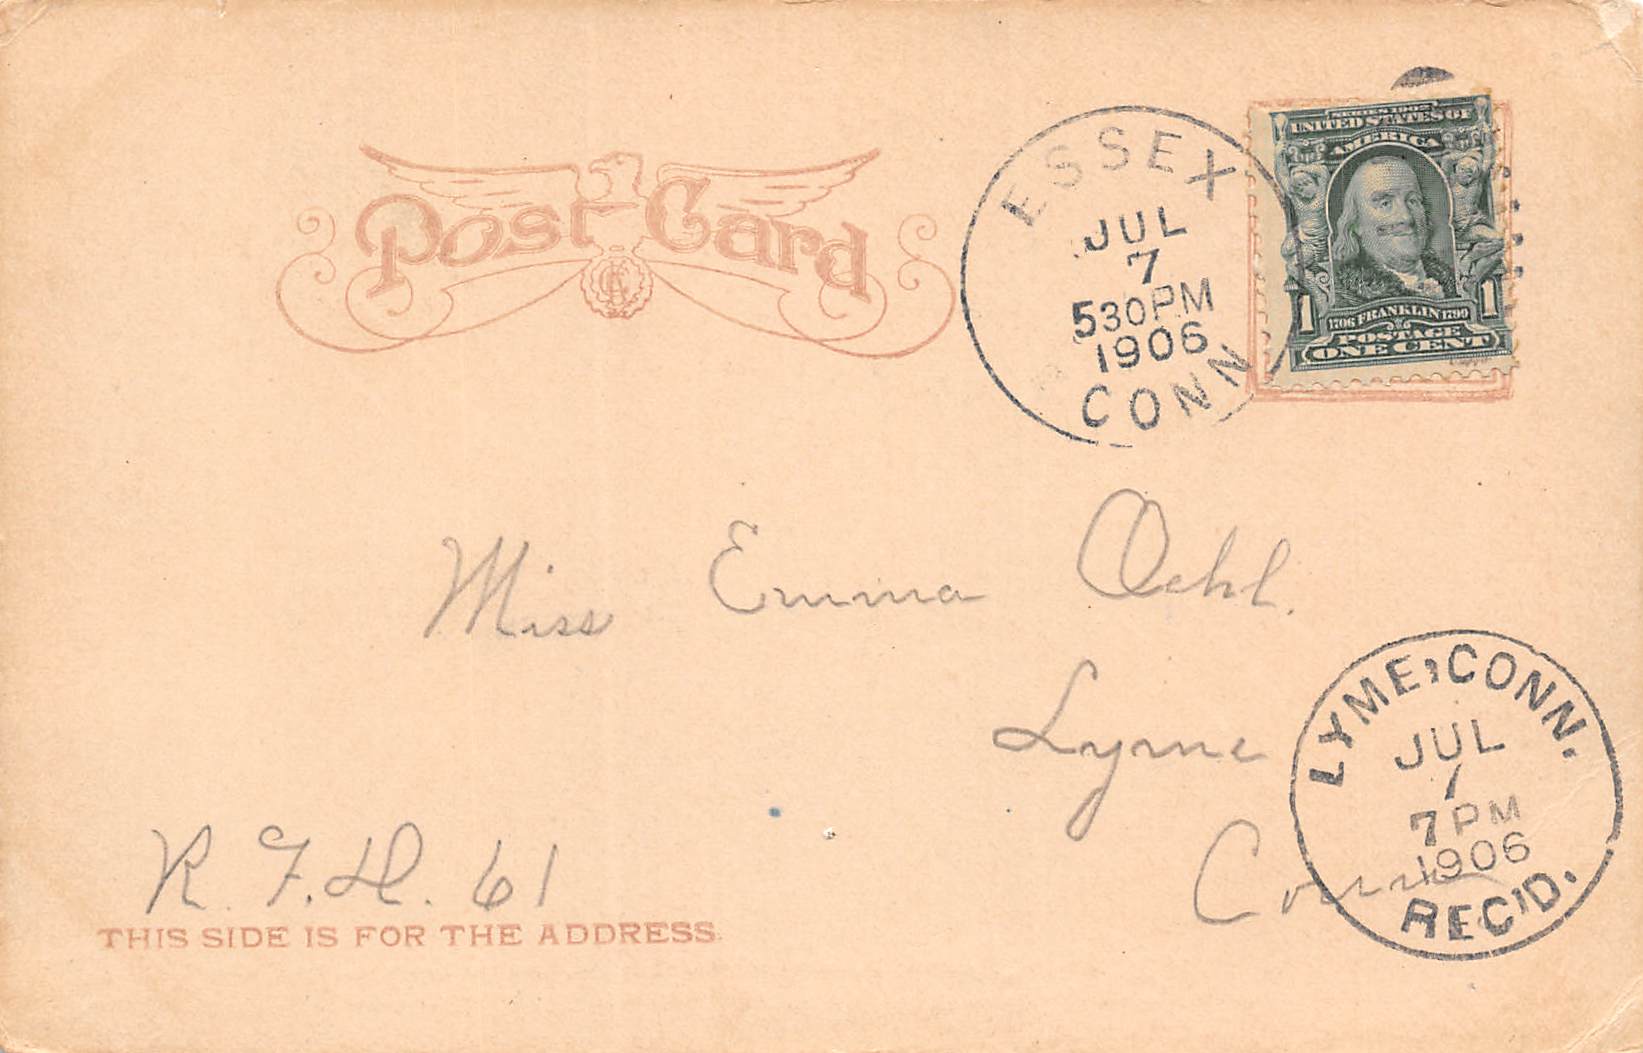 Post Card
ESSEX
JUL
7
530PM
1906
CONN
SERIES 1902
UNITED STATES OF
AMERICA
1 1706 FRANKLIN 1790 1
POSTAGE
ONE CENT
Miss Emma Oehl.
Lyme
Conn
R. F. D. 61
THIS SIDE IS FOR THE ADDRESS.
LYME, CONN.
JUL
7
7 PM
1906
REC'D.